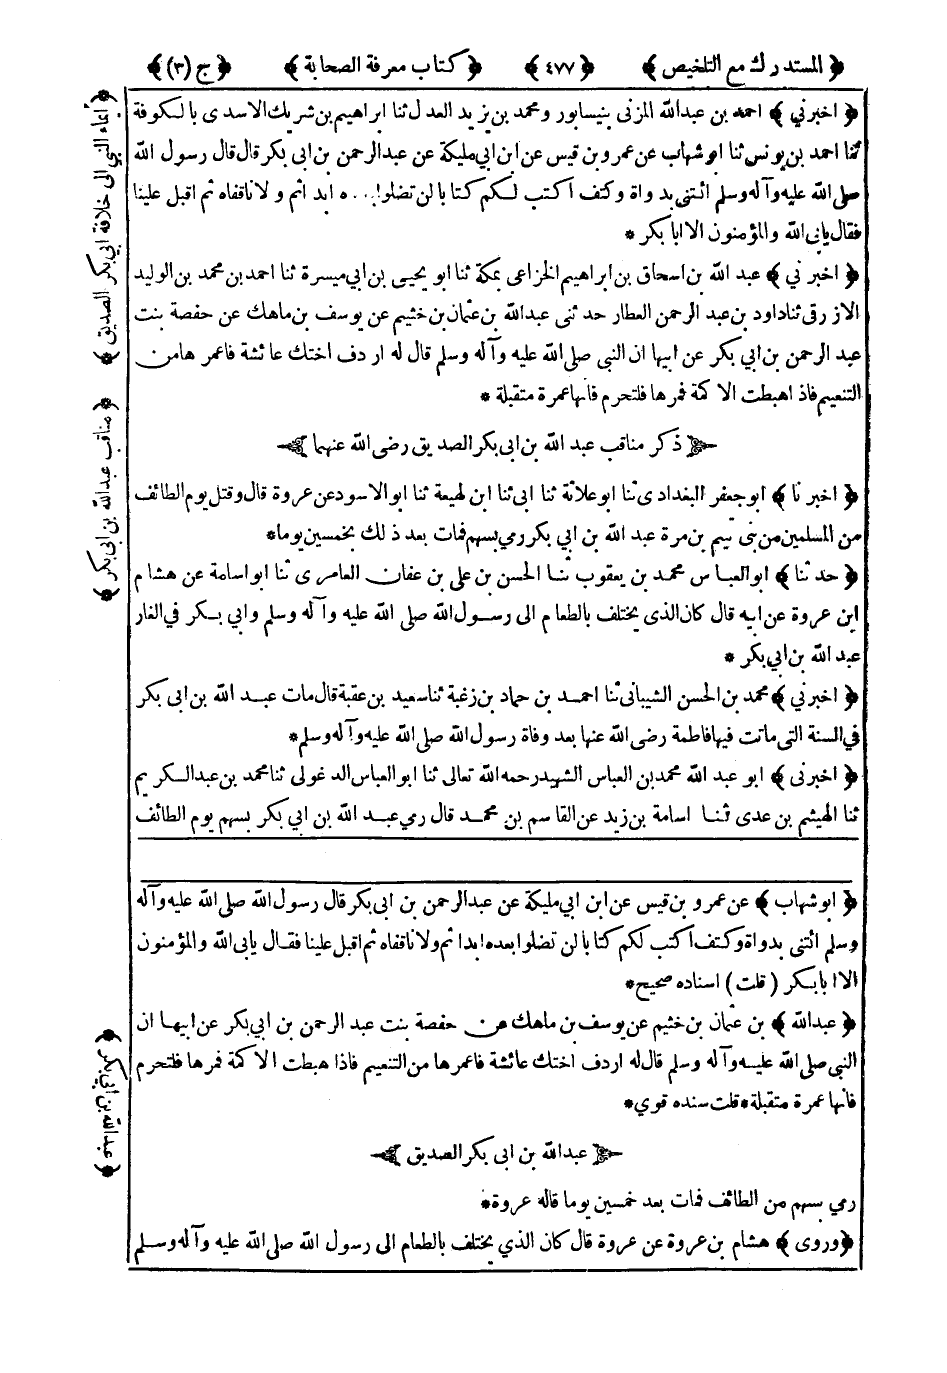 ﴿ المستدرك مع التلخيص ﴾ ﴿ ٤٧٧ ﴾ ﴿ كتاب معرفة الصحابة ﴾ ﴿ ج (٣) ﴾
﴿ اخبرني ﴾ احمد بن عبدالله المزنى بنيسابور ومحمد بن يزيد العدل ثنا ابراهيم بن شريك الاسدى بالكوفة
ثنا احمد بن يونس ثنا ابو شهاب عن عمرو بن قيس عن ابن ابي مليكة عن عبدالرحمن بن ابى بكر قال قال رسول الله
صلى الله عليه وآله وسلم ائتنى بدواة وكتف اكتب لكم كتابا لن تضلوا ... ه ابدا ثم ولانا قفاه ثم اقبل علينا
فقال يابى الله والمؤمنون الا ابا بكر *
﴿ اخبر ني ﴾ عبد الله بن اسحاق بن ابراهيم الخزاعى بمكة ثنا ابو يحيى بن ابى ميسرة ثنا احمد بن محمد بن الوليد
الازرقى ثنا داود بن عبد الرحمن العطار حد ثنى عبدالله بن عثمان بن خثيم عن يوسف بن ماهك عن حفصة بنت
عبد الرحمن بن ابي بكر عن ابيها ان النبى صلى الله عليه وآله وسلم قال له اردف اختك عائشة فاعمر ها من
التنعيم فاذا هبطت الاكمة فمرها فلتحرم فانها عمرة متقبلة *
﴿ ذكر مناقب عبد الله بن ابى بكر الصديق رضى الله عنهما ﴾
﴿ اخبر نا ﴾ ابو جعفر البغدادى ثنا ابو علاثة ثنا ابى ثنا ابن لهيعة ثنا ابو الاسود عن عروة قال وقتل يوم الطائف
من المسلمين من بنى تيم بن مرة عبد الله بن ابي بكر رمي بسهم فمات بعد ذلك بخمسين يوما*
﴿ حد ثنا ﴾ ابو العباس محمد بن يعقوب ثنا الحسن بن على بن عفان العامرى ثنا ابو اسامة عن هشام
ابن عروة عن ابيه قال كان الذى يختلف بالطعام الى رسول الله صلى الله عليه وآله وسلم وابي بكر في الغار
عبد الله بن ابي بكر *
﴿ اخبرني ﴾ محمد بن الحسن الشيبانى ثنا احمد بن حماد بن زغبة ثنا سعيد بن عقبة قال مات عبد الله بن ابى بكر
في السنة التى ماتت فيها فاطمة رضى الله عنها بعد وفاة رسول الله صلى الله عليه وآله وسلم*
﴿ اخبرنى ﴾ ابو عبد الله محمد بن العباس الشهيد رحمه الله تعالى ثنا ابو العباس الدغولى ثنا محمد بن عبد الكريم
ثنا الهيثم بن عدى ثنا اسامة بن زيد عن القاسم بن محمد قال رمي عبد الله بن ابي بكر بسهم يوم الطائف
﴿ ابو شهاب ﴾ عن عمرو بن قيس عن ابن ابي مليكة عن عبدالرحمن بن ابى بكر قال رسول الله صلى الله عليه وآله
وسلم ائتنى بدواة وكتف اكتب لكم كتابا لن تضلوا بعده ابدا ثم ولانا قفاه ثم اقبل علينا فقال يابى الله والمؤمنون
الا ابا بكر ( قلت ) اسناده صحيح*
﴿ عبدالله ﴾ بن عثمان بن خثيم عن يوسف بن ماهك عن حفصة بنت عبد الرحمن بن ابي بكر عن ابيها ان
النبى صلى الله عليه وآله وسلم قال له اردف اختك عائشة فاعمرها من التنعيم فاذا هبطت الاكمة فمرها فلتحرم
فانها عمرة متقبلة*قلت سنده قوي*
﴿ عبدالله بن ابى بكر الصديق ﴾
رمي بسهم من الطائف فمات بعد خمسين يوما قاله عروة*
﴿ وروى ﴾ هشام بن عروة عن عروة قال كان الذي يختلف بالطعام الى رسول الله صلى الله عليه وآله وسلم
﴿ ايماء النبي الى خلافة ابي بكر الصديق ﴾
﴿ مناقب عبدالله بن ابى بكر ﴾
﴿ عبدالله بن ابي بكر ﴾